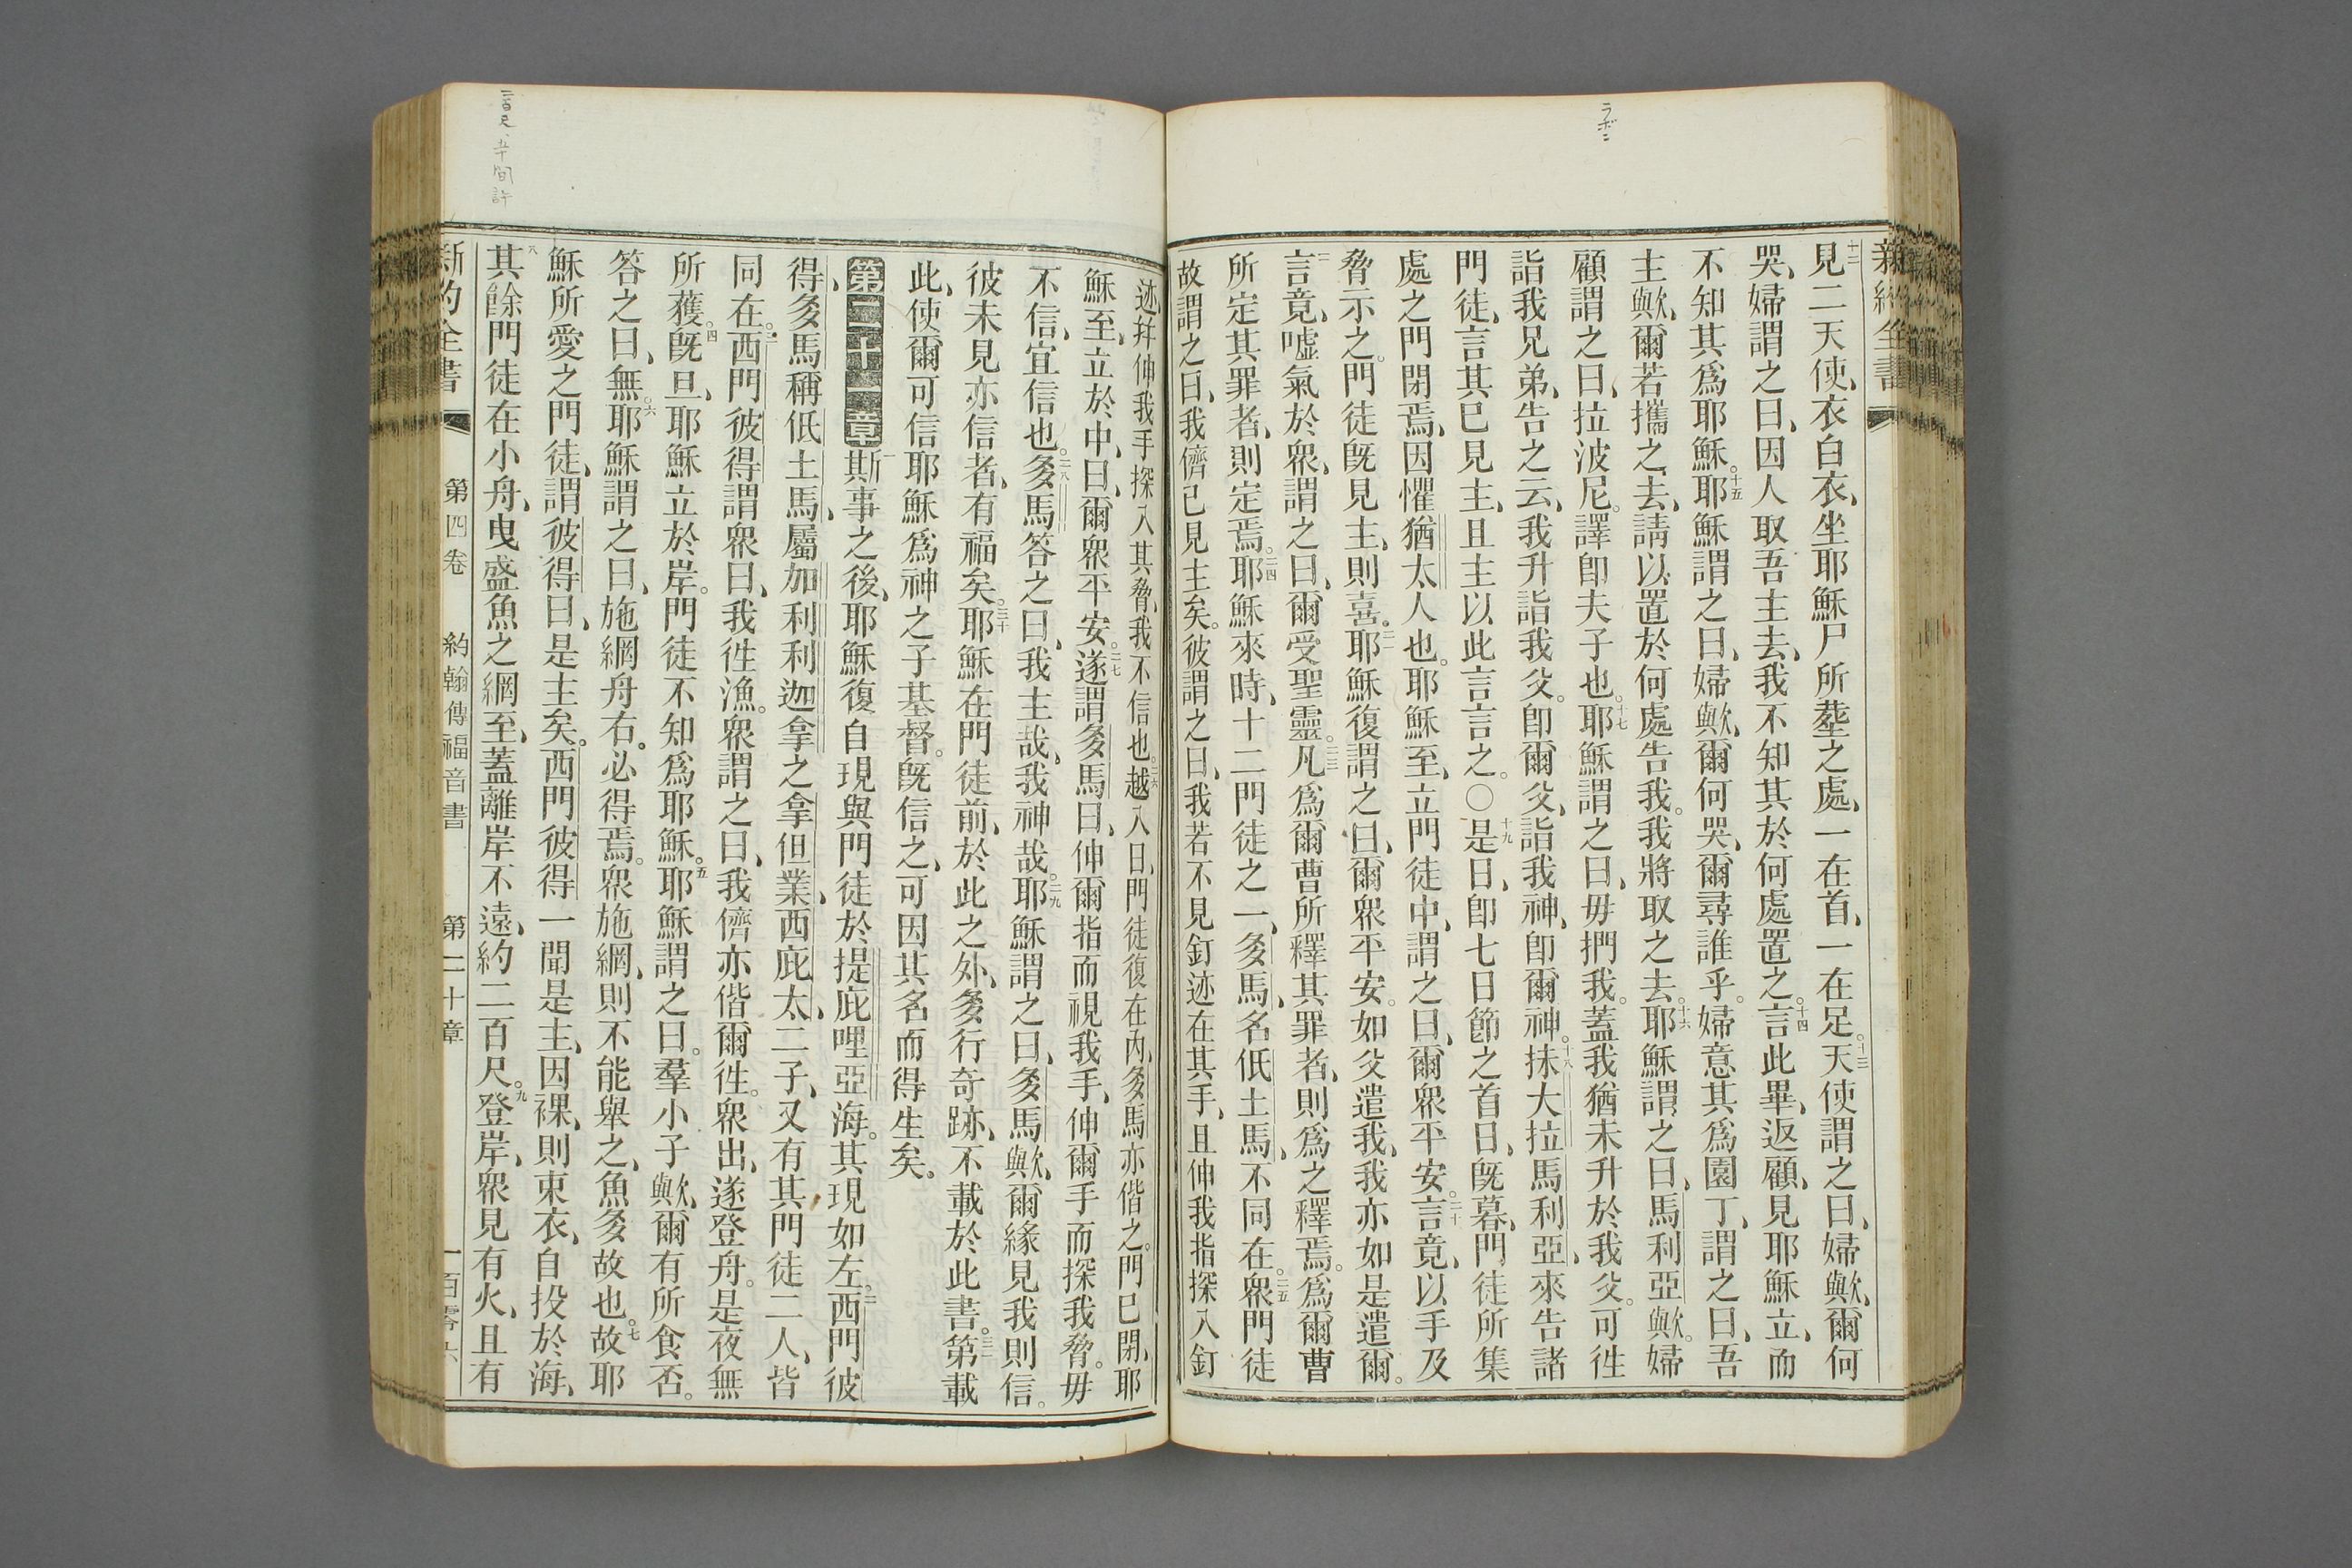 ラボニ
新約全書
十二見二天使、衣白衣、坐耶穌尸所葬之處、一在首、一在足。十三天使謂之曰、婦歟、爾何
哭、婦謂之曰、因人取吾主去、我不知其於何處置之。十四言此畢、返顧、見耶穌立、而
不知其爲耶穌。十五耶穌謂之曰、婦歟、爾何哭、爾尋誰乎。婦意其爲園丁、謂之曰、吾
主歟、爾若攜之去、請以置於何處告我。我將取之去。十六耶穌謂之曰、馬利亞歟。婦
顧謂之曰、拉波尼。譯卽夫子也。十七耶穌謂之曰、毋捫我。蓋我猶未升於我父。可徃
詣我兄弟、告之云、我升詣我父。卽爾父、詣我神、卽爾神。十八抹大拉馬利亞、來告諸
門徒、言其已見主、且主以此言言之。〇十九是日、卽七日節之首日、旣暮、門徒所集
處之門閉焉、因懼猶太人也。耶穌至、立門徒中、謂之曰、爾衆平安。二十言竟、以手及
脅示之。門徒旣見主、則喜。二一耶穌復謂之曰、爾衆平安。如父遣我、我亦如是遣爾。
二二言竟、噓氣於衆、謂之曰、爾受聖靈。二三凡爲爾曹所釋其罪者、則爲之釋焉。爲爾曹
所定其罪者、則定焉。二四耶穌來時、十二門徒之一、多馬、名低土馬、不同在。二五衆門徒
故謂之曰、我儕已見主矣。彼謂之曰、我若不見釘迹在其手、且伸我指探入釘
迹、幷伸我手探入其脅、我不信也。二六越八日、門徒復在內、多馬亦偕之。門已閉、耶
穌至、立於中、曰、爾衆平安。二七遂謂多馬曰、伸爾指而視我手、伸爾手而探我脅。毋
不信、宜信也。二八多馬答之曰、我主哉、我神哉。二九耶穌謂之曰、多馬歟、爾緣見我則信。
彼未見亦信者、有福矣。三十耶穌在門徒前、於此之外、多行奇跡、不載於此書。三一第載
此、使爾可信耶穌爲神之子基督。旣信之、可因其名而得生矣。
第二十一章 一斯事之後、耶穌復自現與門徒於提庇哩亞海。其現如左。二西門彼
得、多馬稱低土馬、屬加利利迦拿之拿但業、西庇太二子、又有其門徒二人、皆
同在。三西門彼得謂衆曰、我徃漁。衆謂之曰、我儕亦偕爾徃。衆出、遂登舟。是夜無
所獲。四旣旦、耶穌立於岸。門徒不知爲耶穌。五耶穌謂之曰。羣小子歟、爾有所食否。
答之曰、無。六耶穌謂之曰、施網舟右。必得焉。衆施網、則不能舉之、魚多故也。七故耶
穌所愛之門徒、謂彼得曰、是主矣。西門彼得一聞是主、因裸、則束衣、自投於海、
八其餘門徒在小舟、曳盛魚之網至、蓋離岸不遠、約二百尺。九登岸、衆見有火、且有
新約全書 第四卷 約翰傳福音書 第二十章 一百零六
二百尺、五十間許